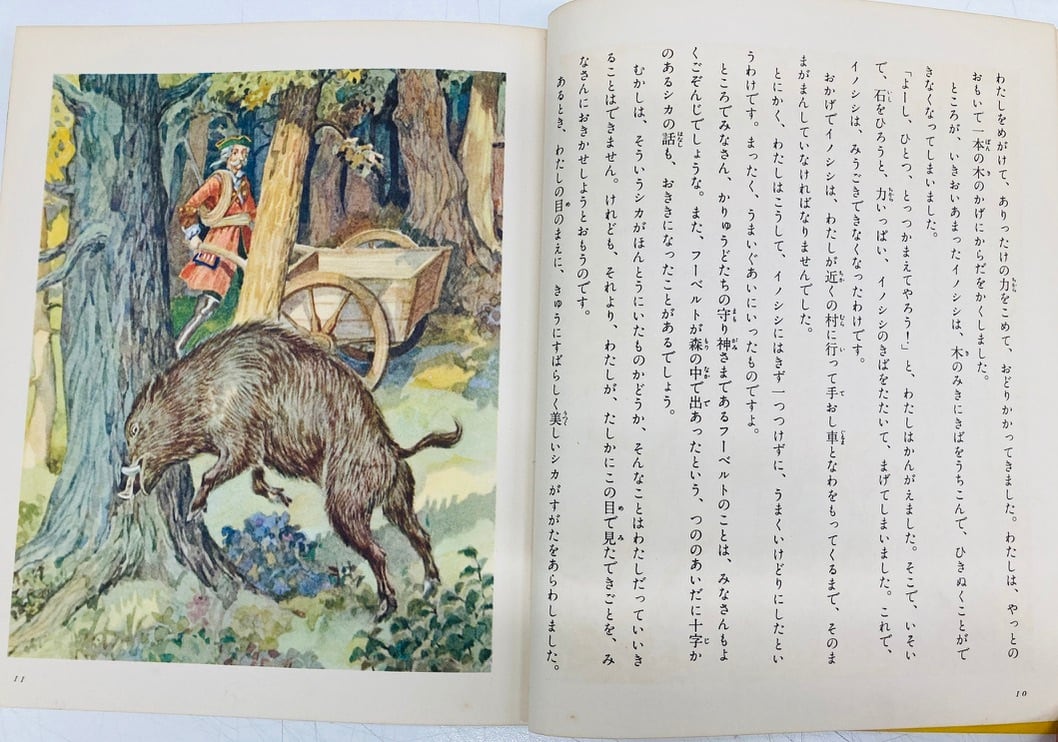 わたしをめがけて、ありったけの力をこめて、おどりかかってきました。わたしは、やっとの
おもいで一本の木のかげにからだをかくしました。
ところが、いきおいあまったイノシシは、木のみきにきばをうちこんで、ひきぬくことがで
きなくなってしまいました。
「よーし、ひとつ、とっつかまえてやろう！」と、わたしはかんがえました。そこで、いそい
で、石をひろうと、力いっぱい、イノシシのきばをたたいて、まげてしまいました。これで、
イノシシは、みうごきできなくなったわけです。
おかげでイノシシは、わたしが近くの村に行って手おし車となわをもってくるまで、そのま
まがまんしていなければなりませんでした。
とにかく、わたしはこうして、イノシシにはきず一つつけずに、うまくいけどりにしたとい
うわけです。まったく、うまいぐあいにいったものですよ。
ところでみなさん、かりゅうどたちの守り神さまであるフーベルトのことは、みなさんもよ
くごぞんじでしょうな。また、フーベルトが森の中で出あったという、つののあいだに十字か
のあるシカの話も、おききになったことがあるでしょう。
むかしは、そういうシカがほんとうにいたものかどうか、そんなことはわたしだっていいき
ることはできません。けれども、それより、わたしが、たしかにこの目で見たできごとを、み
なさんにおきかせしようとおもうのです。
あるとき、わたしの目のまえに、きゅうにすばらしく美しいシカがすがたをあらわしました。
10
11